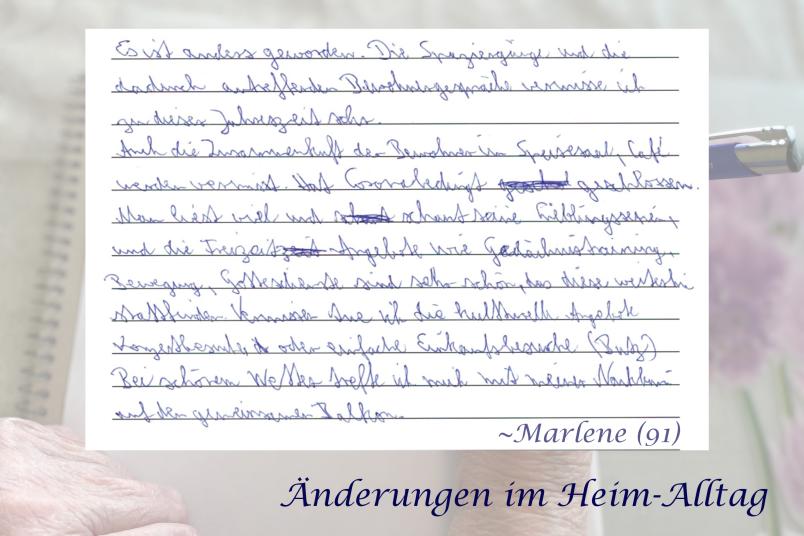 Es ist anders geworden. Die Spaziergänge und die
dadurch antreffenden Bewohnergespräche vermisse ich
zu dieser Jahreszeit sehr.
Auch die Zusammenkunft der Bewohner im Speisesaal, Café
werden vermisst. Hat Coronabedingt geschlossen.
Man liest viel und schaut seine Lieblingsserien,
und die Freizeit-Angebote wie Gedächnistraining,
Bewegung, Gottesdienste sind sehr schön, das diese weiterhin
stattfinden. Vermissen tue ich die kulturelle Angebote
Konzertbesuche oder einfache Einkaufsbesuche (Butz)
Bei schönem Wetter treffe ich mich mit meiner Nachbarin
auf den gemeinsamen Balkon.
~Marlene (91)
Änderungen im Heim-Alltag